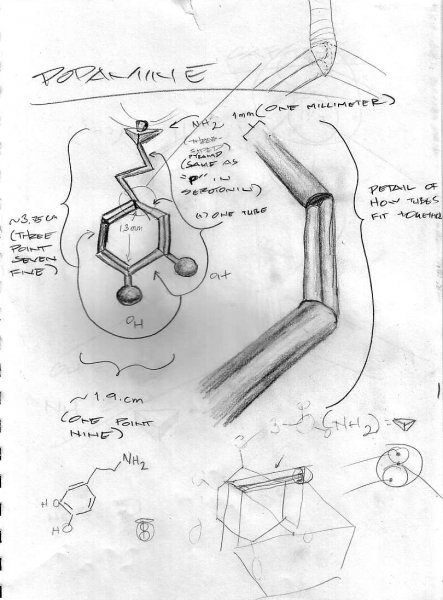 DOPAMINE
1mm (ONE MILLIMETER)
NH2
PYRAMID
(SAME AS
"P" IN
SEROTONIN)
(1) ONE TUBE
DETAIL OF
HOW TUBES
FIT TOGETHER
~3.75cm
(THREE
POINT
SEVEN
FIVE)
13mm
OH
OH
~ 1.9.cm
(ONE POINT
NINE)
NH2) =
NH2
HO
HO